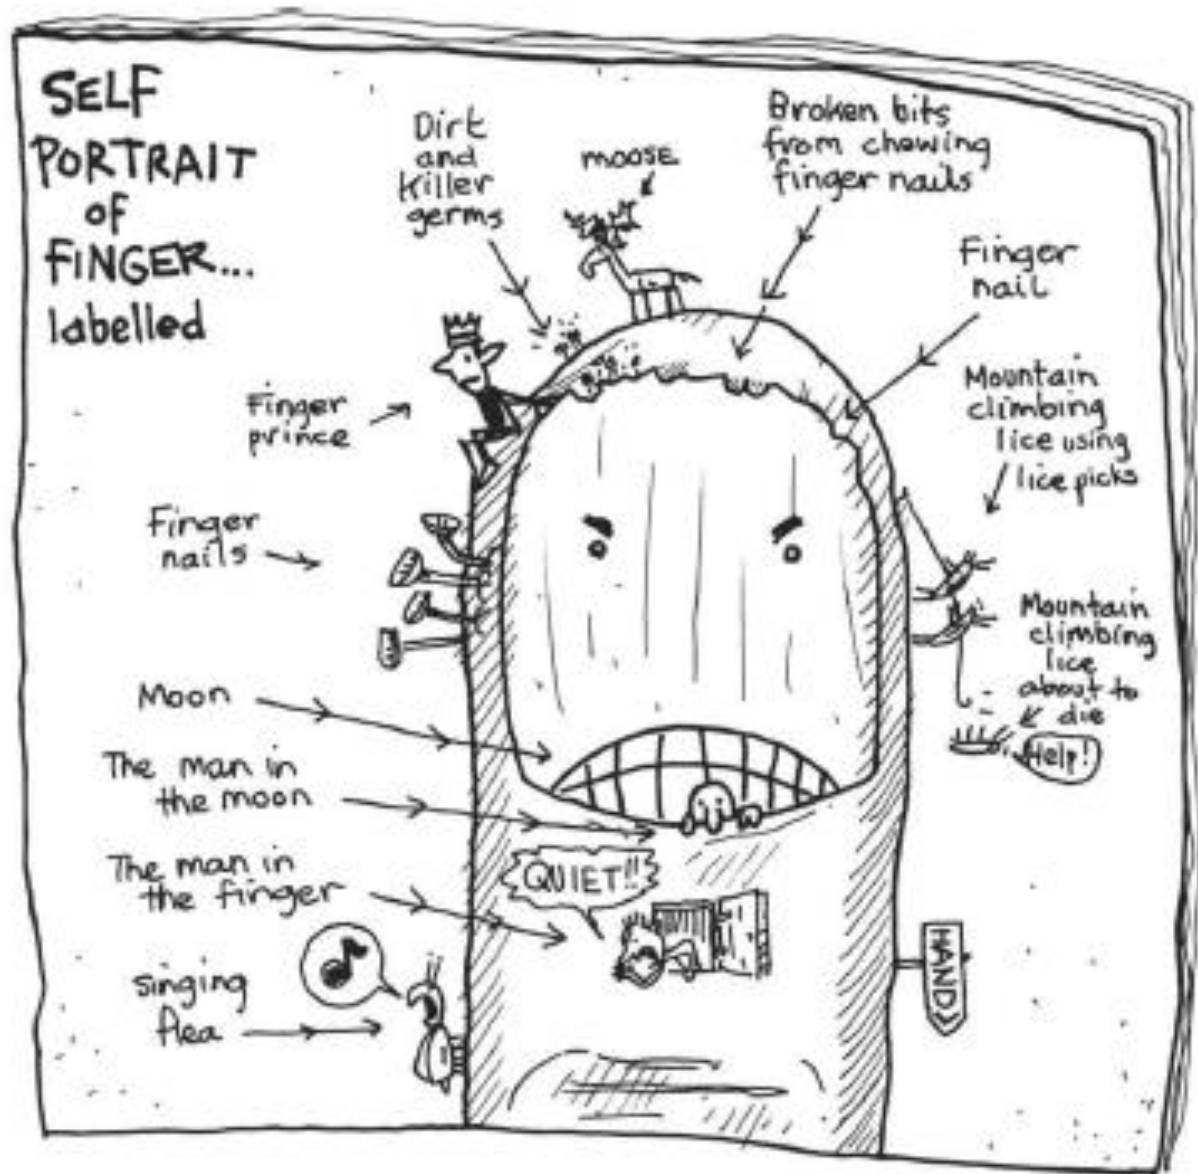 SELF
PORTRAIT
of
FINGER...
labelled
Dirt
and
killer
germs
moose
Broken bits
from chewing
finger nails
Finger
nail
Finger
prince
Mountain
climbing
lice using
lice picks
Finger
nails
Mountain
climbing
lice
about to
die
Help!
Moon
The man in
the moon
The man in
the finger
QUIET!!
HAND
singing
flea